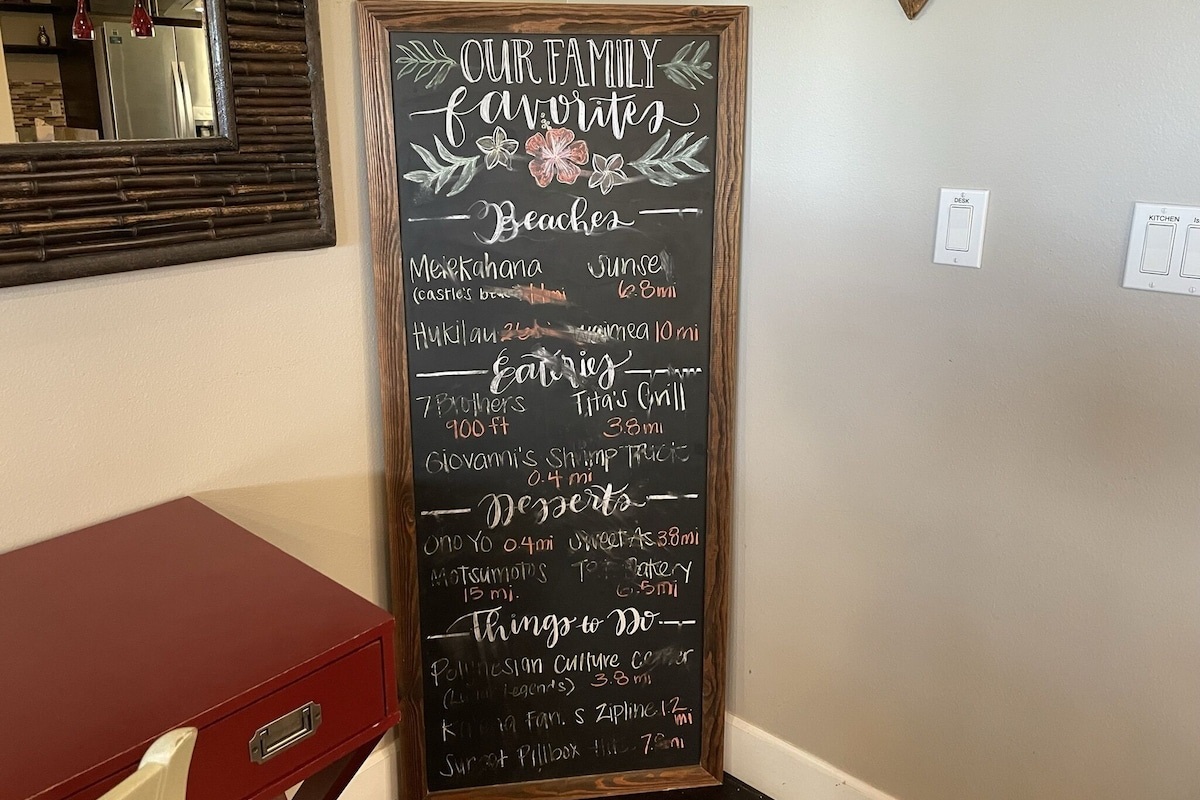 OUR FAMILY
favorites
Beaches
Melekahana Sunse
(castle's mi 6.8mi
Hukilau waimea 10 mi
Eateries
7 Brothers Tita's Grill
900 ft 3.8mi
Giovanni's Shrimp Truck
0.4 mi
Desserts
Ono Yo 0.4mi Sweet As 3.8mi
Motsumotos Bakery
15 mi. 6.5mi
Things to Do
Polynesian Culture Center
Legends) 3.8 mi
Zipline 1.2
mi
Sunset Pillbox mi
DESK
KITCHEN